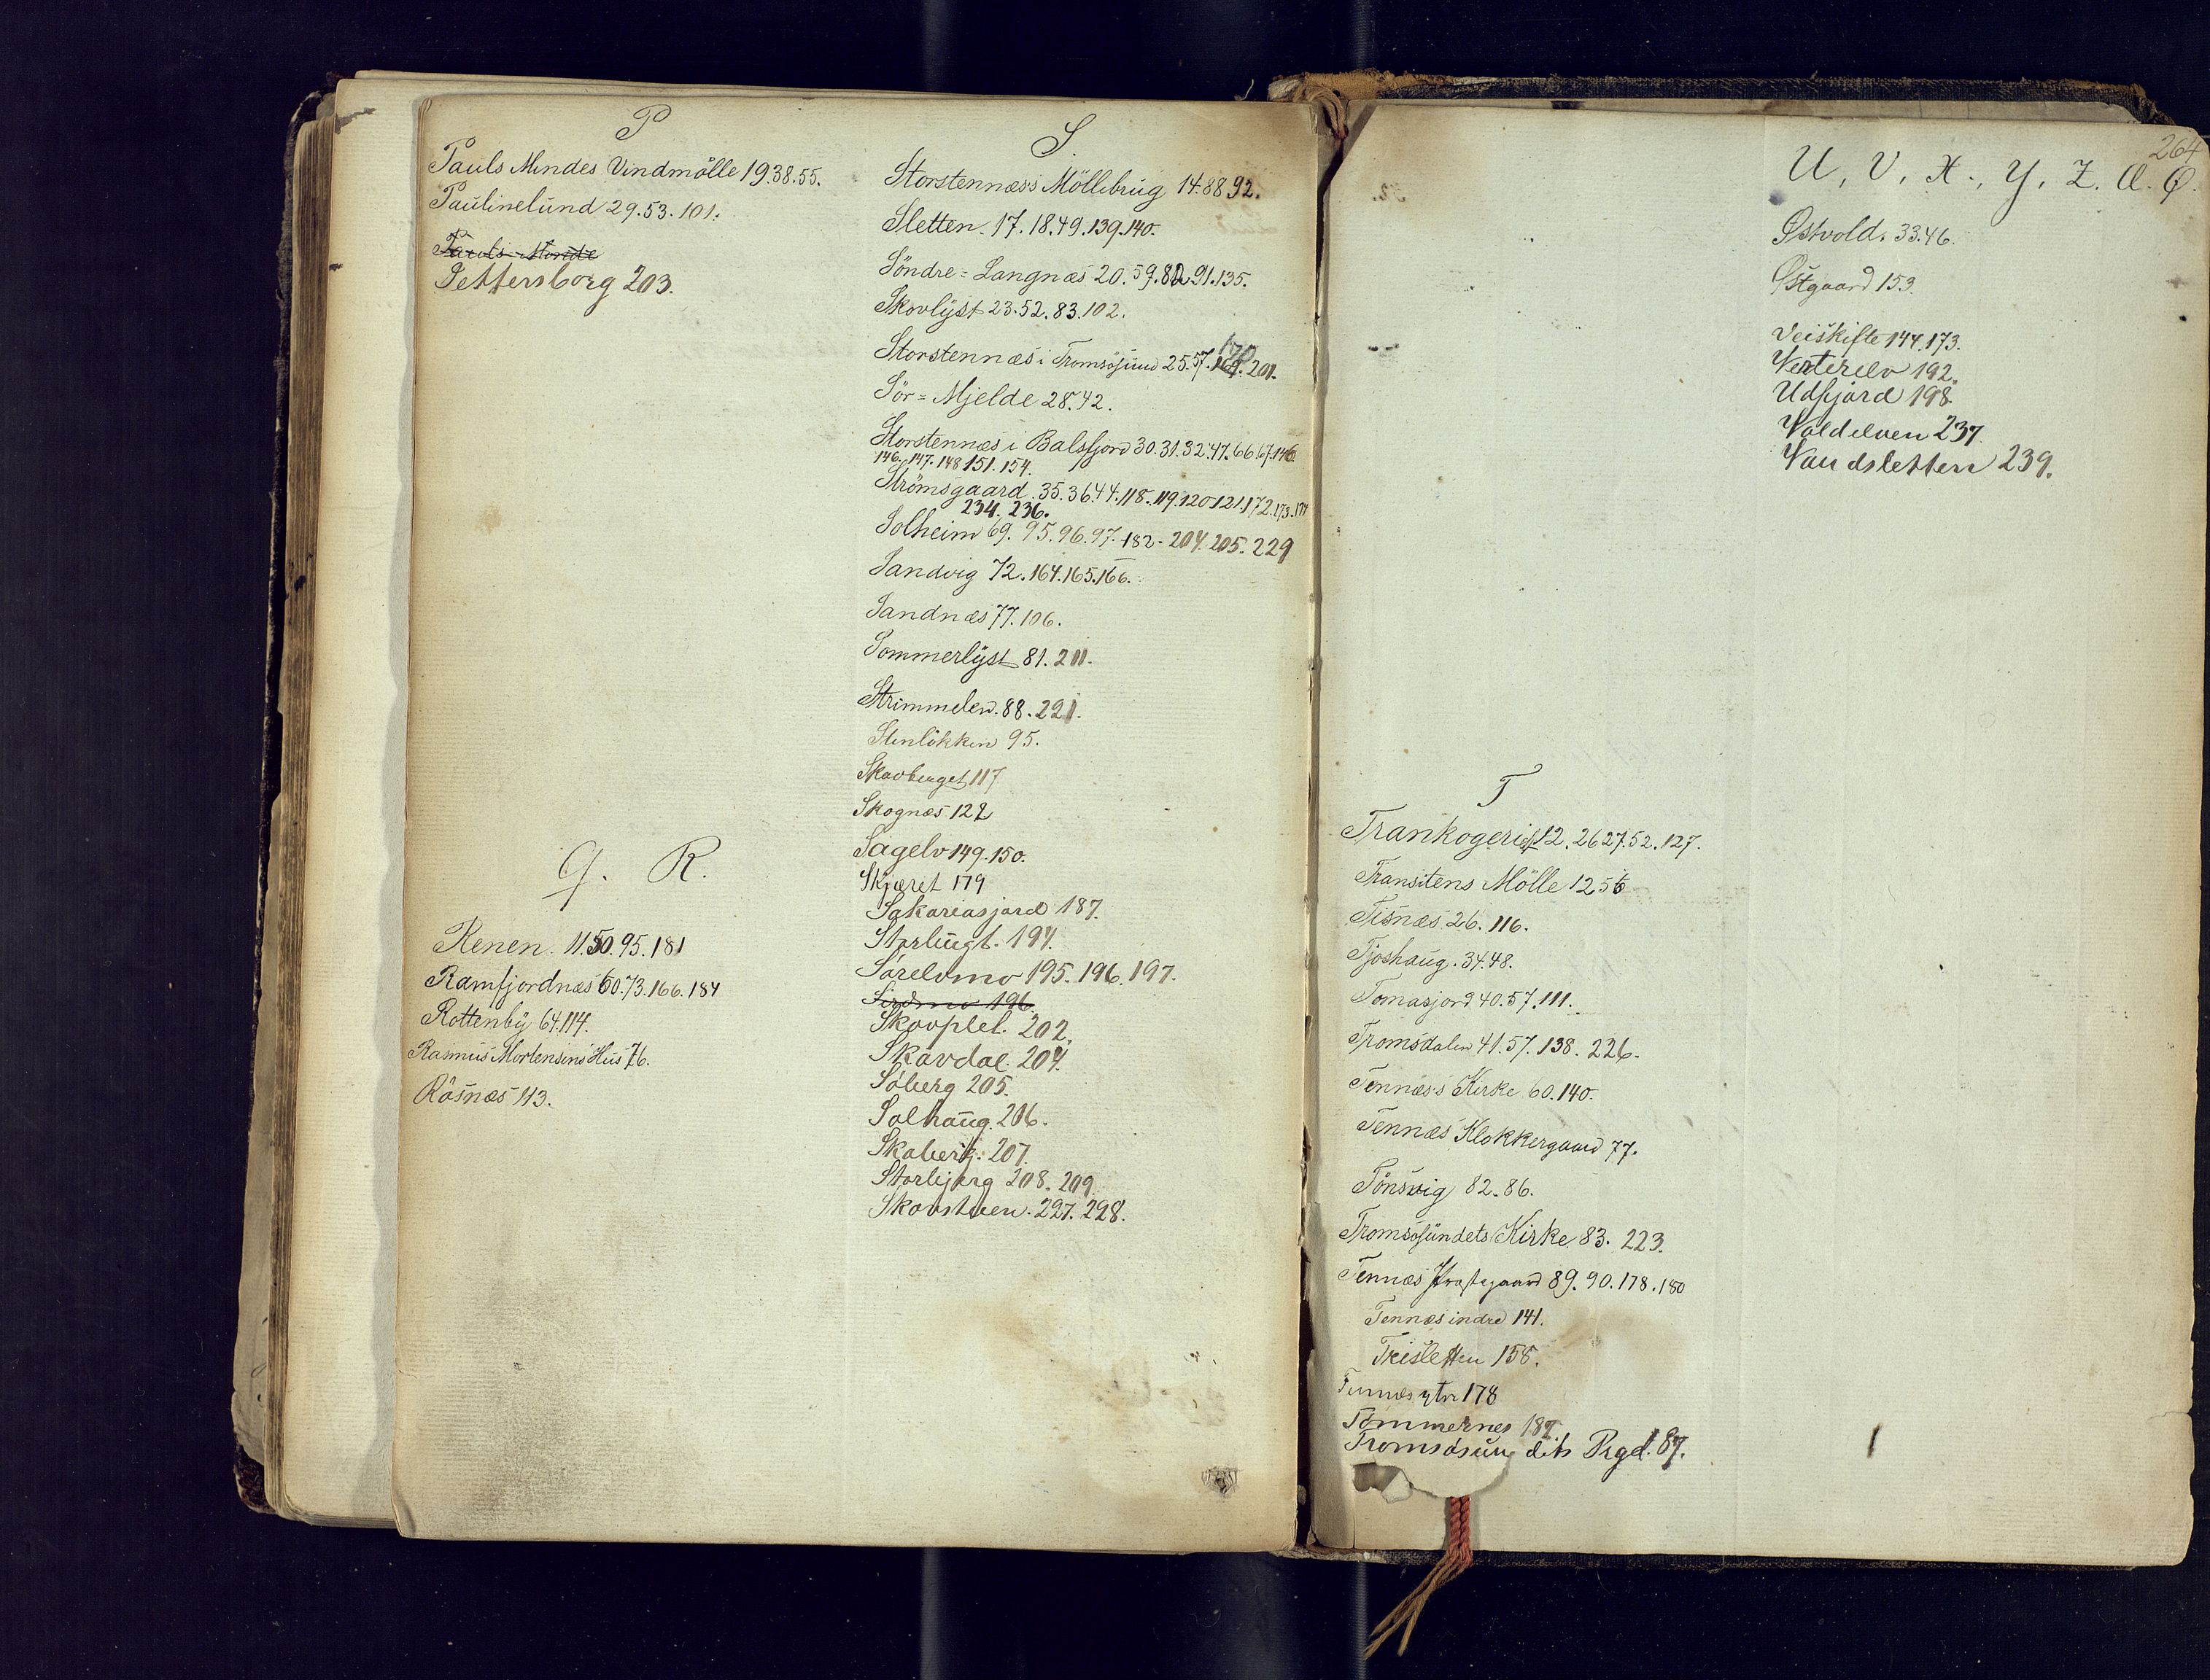 P
Pauls Mindes Vindmölle 19.38.55.
Paulinelund 29.53.101.
Pauls Minde
Pettersborg 203.
Q. R.
Renen. 11.50.95.181
Ramfjordnæs 60.73.166.184
Rottenby 64.114.
Rasmus Mortensens Hus 76.
Rösnæs 113.
S.
Storstennæss Möllebrug 14.88 92.
Sletten. 17.18.49.139.140.
Söndre=Langnæs 20.59.82.91.135.
Skovlyst 23.52.83.102.
Storstennæs i Tromsösund 25.57.170.201.
Sör=Mjelde 28.42.
Storstennæs i Balsfjord 30.31.32.47.66.67.146
146.147.148 151.154.
Strömsgaard. 35.36.44.118.119.120.121.172.173.174
234. 236.
Solheim 69.95.96.97.182-204.205.229
Sandvig 72.164.165.166.
Sandnæs 77.106.
Sommerlyst 81.211.
Strimmelen. 88.221.
Stenlökken 95.
Skavberget 117
Skognæs 122
Sagelv 149.150.
Skjæret 179
Sakariasjord 187.
Storbugt. 194.
Sörelvmo 195.196.197.
196.
Skovplet. 202.
Skavdal. 204.
Söberg 205.
Solhaug. 206.
Skaberg. 207.
Storbjerg 208.209.
Skovstuen. 227.228.
264
U, V, X., Y, Z. Æ. Ø.
Østvold. 33.46.
Østgaard 153.
Veiskifte 147.173.
Vesterelv 192.
Udfjord 198.
Valdelven 237.
Vandsletten 239.
T
Trankogeriet 12.26 27.52.127.
Transitens Mölle 12 56
Tisnæs 26.116.
Tjoshaug. 34.48.
Tomasjord 40.57.111.
Tromsdalen 41.57.138.226.
Tennæs's Kirke 60.140.
Tennæs Klokkergaard 77.
Tönsvig 82.86.
Tromsösundets Kirke 83.223.
Tennæs Præstegaard 89.90.178.180
Tennæs indre 141.
Treisletten 158.
Tennæs ytre 178
Tömmernes 187.
Tromsösun dets Prgd. 87.